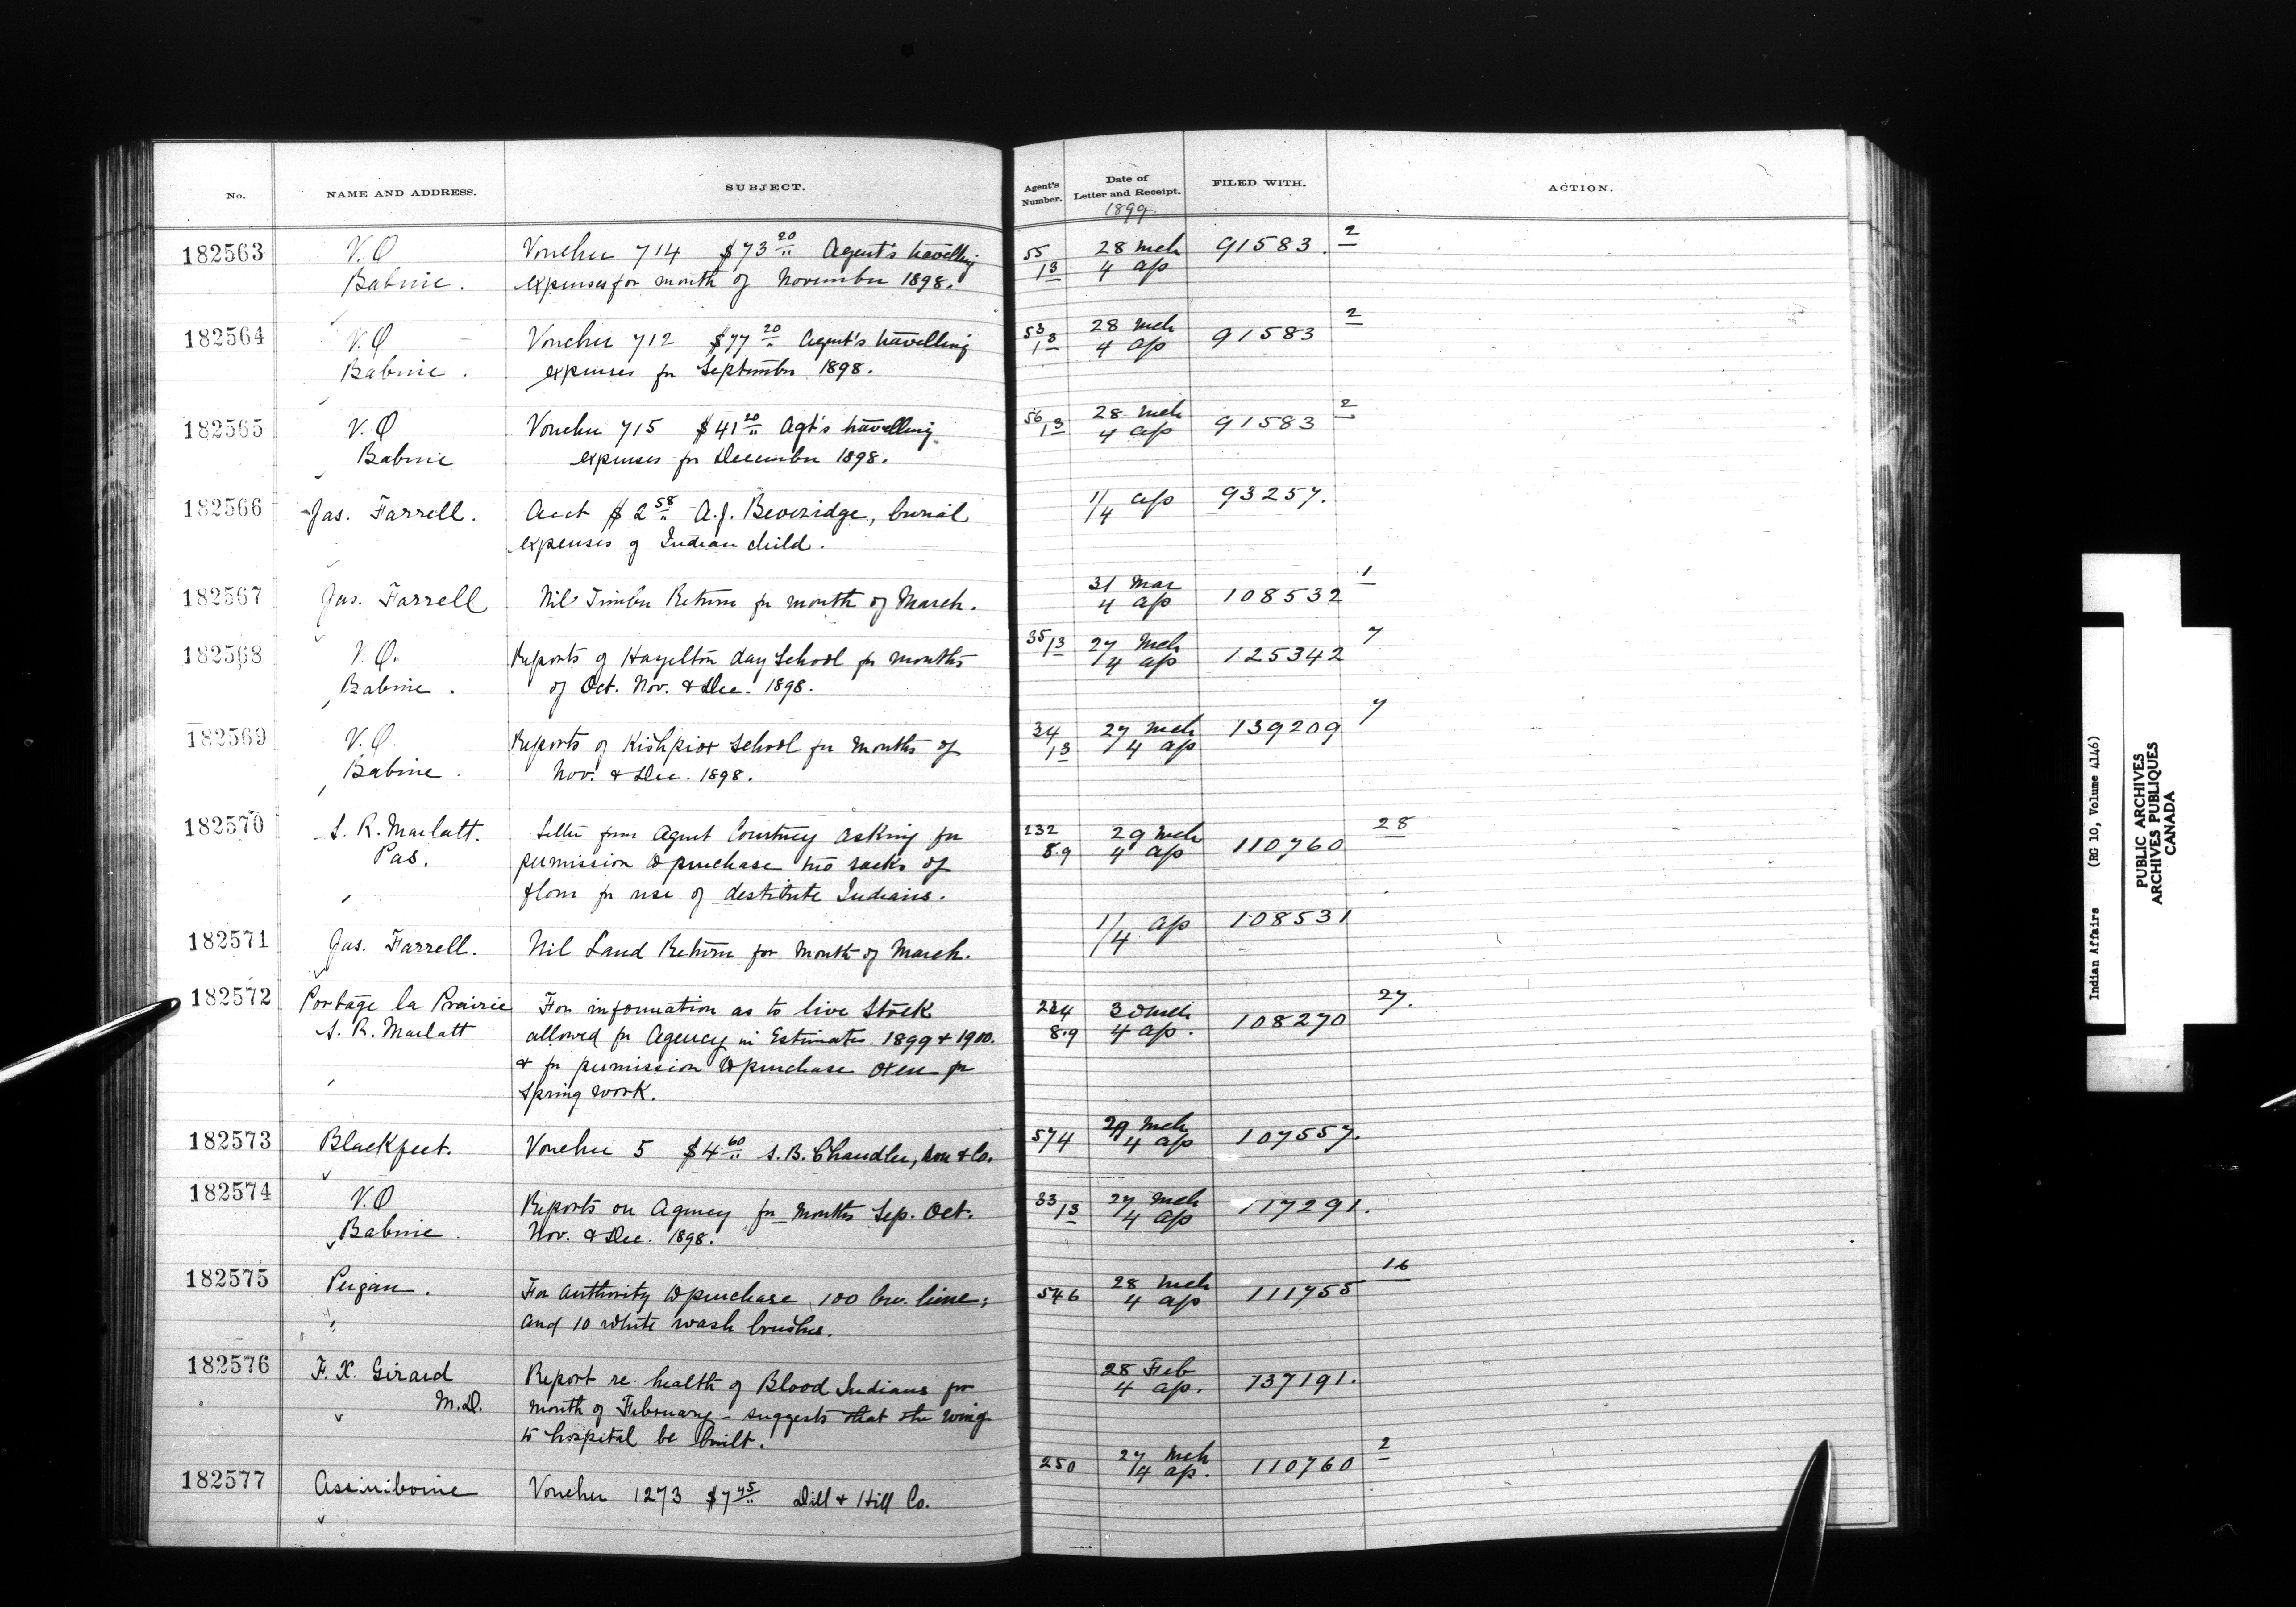 No. NAME AND ADDRESS. SUBJECT. Agent's Number. Date of Letter and Receipt. FILED WITH. ACTION.
1899
182563 V.O Voucher 714 $73 20 Agent's travelling 55 28 Mch 91583. 2
Babine. expenses for month of November 1898. 13 4 ap
182564 V.O Voucher 712 $77 20 Agent's travelling 53 28 Mch 91583 2
Babine. expenses for September 1898. 13 4 ap
182565 V.O Voucher 715 $41 20 Agt's travelling 56 28 Mch 91583 2
Babine expenses for December 1898. 13 4 ap
182566 Jas. Farrell. Acct $2 58 A.J. Beveridge, burial 1/4 ap 93257.
expenses of Indian child.
182567 Jas. Farrell Nil Timber Return for month of March. 31 Mar 108532 1
4 ap
182568 V.O. Reports of Hazelton day School for months 35/13 27 Mch 125342 7
Babine. of Oct. Nov. & Dec. 1898. 4 ap
182569 V.O. Reports of Kishpiox School for months of 34 27 Mch 139209 7
Babine. Nov. & Dec. 1898. 13 4 ap
182570 S. R. Marlatt. Letter from Agent Courtney asking for 232 29 Mch 110760 28
Pas. permission to purchase two sacks of 8.9 4 ap
flour for use of destitute Indians.
182571 Jas. Farrell. Nil Land Return for month of March. 1/4 ap 108531
182572 Portage la Prairie For information as to live Stock 224 30 Mch 108270 27.
S. R. Marlatt allowed for Agency in Estimates 1899 & 1900. 8.9 4 ap.
& for permission to purchase oxen for
spring work.
182573 Blackfeet. Voucher 5 $4 60 S.B. Chandler, Son & Co. 574 29 Mch 107557.
4 ap
182574 V.O Reports on Agency for months Sep. Oct. 33/13 27 Mch 117291.
Babine. Nov. & Dec. 1898. 4 ap
182575 Peigan. For authority to purchase 100 bu. lime; 546 28 Mch 111755 16
and 10 white wash brushes. 4 ap
182576 F. X. Girard Report re. health of Blood Indians for 28 Feb 137191.
M.D. month of February - suggests that the wing 4 ap.
to hospital be built.
182577 Assiniboine Voucher 1273 $7 45 Dill & Hill Co. 250 27 Mch 110760 2
4 ap.
Indian Affairs (RG 10, Volume 4146)
PUBLIC ARCHIVES
ARCHIVES PUBLIQUES
CANADA